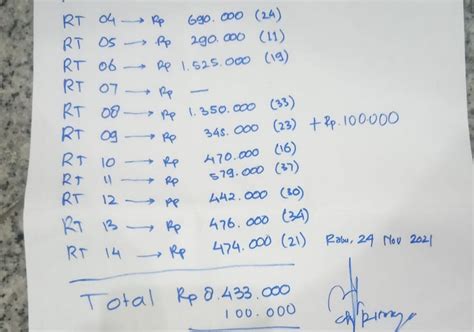 RT 04 → Rp 690.000 (24)
RT 05 → Rp 290.000 (11)
RT 06 → Rp 1.525.000 (19)
RT 07 → Rp —
RT 08 → Rp 1.350.000 (33)
RT 09 → Rp 345.000 (23) + Rp.100.000
RT 10 → Rp 470.000 (16)
RT 11 → Rp 579.000 (37)
RT 12 → Rp 442.000 (30)
RT 13 → Rp 476.000 (34)
RT 14 → Rp 474.000 (21) Rabu, 24 Nov 2021
Total Rp 8.433.000
100.000